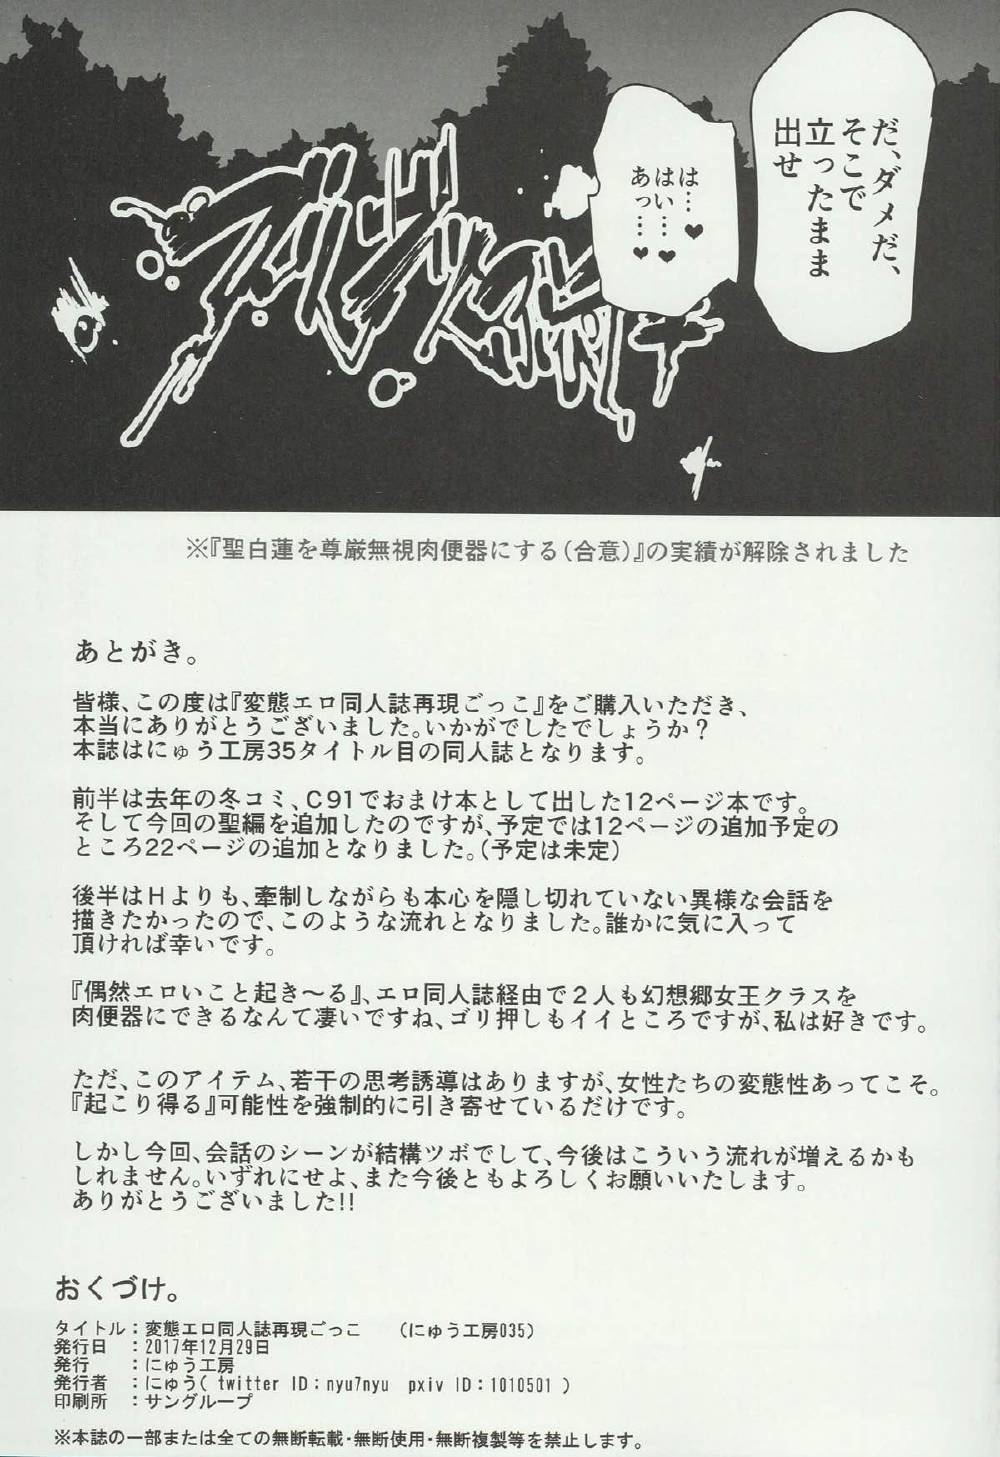 だ、ダメだ、
そこで
立ったまま
出せ
は…♥
はい…♥
あっ…♥
※『聖白蓮を尊厳無視肉便器にする(合意)』の実績が解除されました
あとがき。
皆様、この度は『変態エロ同人誌再現ごっこ』をご購入いただき、
本当にありがとうございました。いかがでしたでしょうか？
本誌はにゅう工房35タイトル目の同人誌となります。
前半は去年の冬コミ、C91でおまけ本として出した12ページ本です。
そして今回の聖編を追加したのですが、予定では12ページの追加予定の
ところ22ページの追加となりました。(予定は未定)
後半はHよりも、牽制しながらも本心を隠し切れていない異様な会話を
描きたかったので、このような流れとなりました。誰かに気に入って
頂ければ幸いです。
『偶然エロいこと起き～る』、エロ同人誌経由で2人も幻想郷女王クラスを
肉便器にできるなんて凄いですね、ゴリ押しもイイところですが、私は好きです。
ただ、このアイテム、若干の思考誘導はありますが、女性たちの変態性あってこそ。
『起こり得る』可能性を強制的に引き寄せているだけです。
しかし今回、会話のシーンが結構ツボでして、今後はこういう流れが増えるかも
しれません。いずれにせよ、また今後ともよろしくお願いいたします。
ありがとうございました!!
おくづけ。
タイトル：変態エロ同人誌再現ごっこ　(にゅう工房035)
発行日　：2017年12月29日
発行　　：にゅう工房
発行者　：にゅう( twitter ID：nyu7nyu　pxiv ID：1010501 )
印刷所　：サングループ
※本誌の一部または全ての無断転載・無断使用・無断複製等を禁止します。